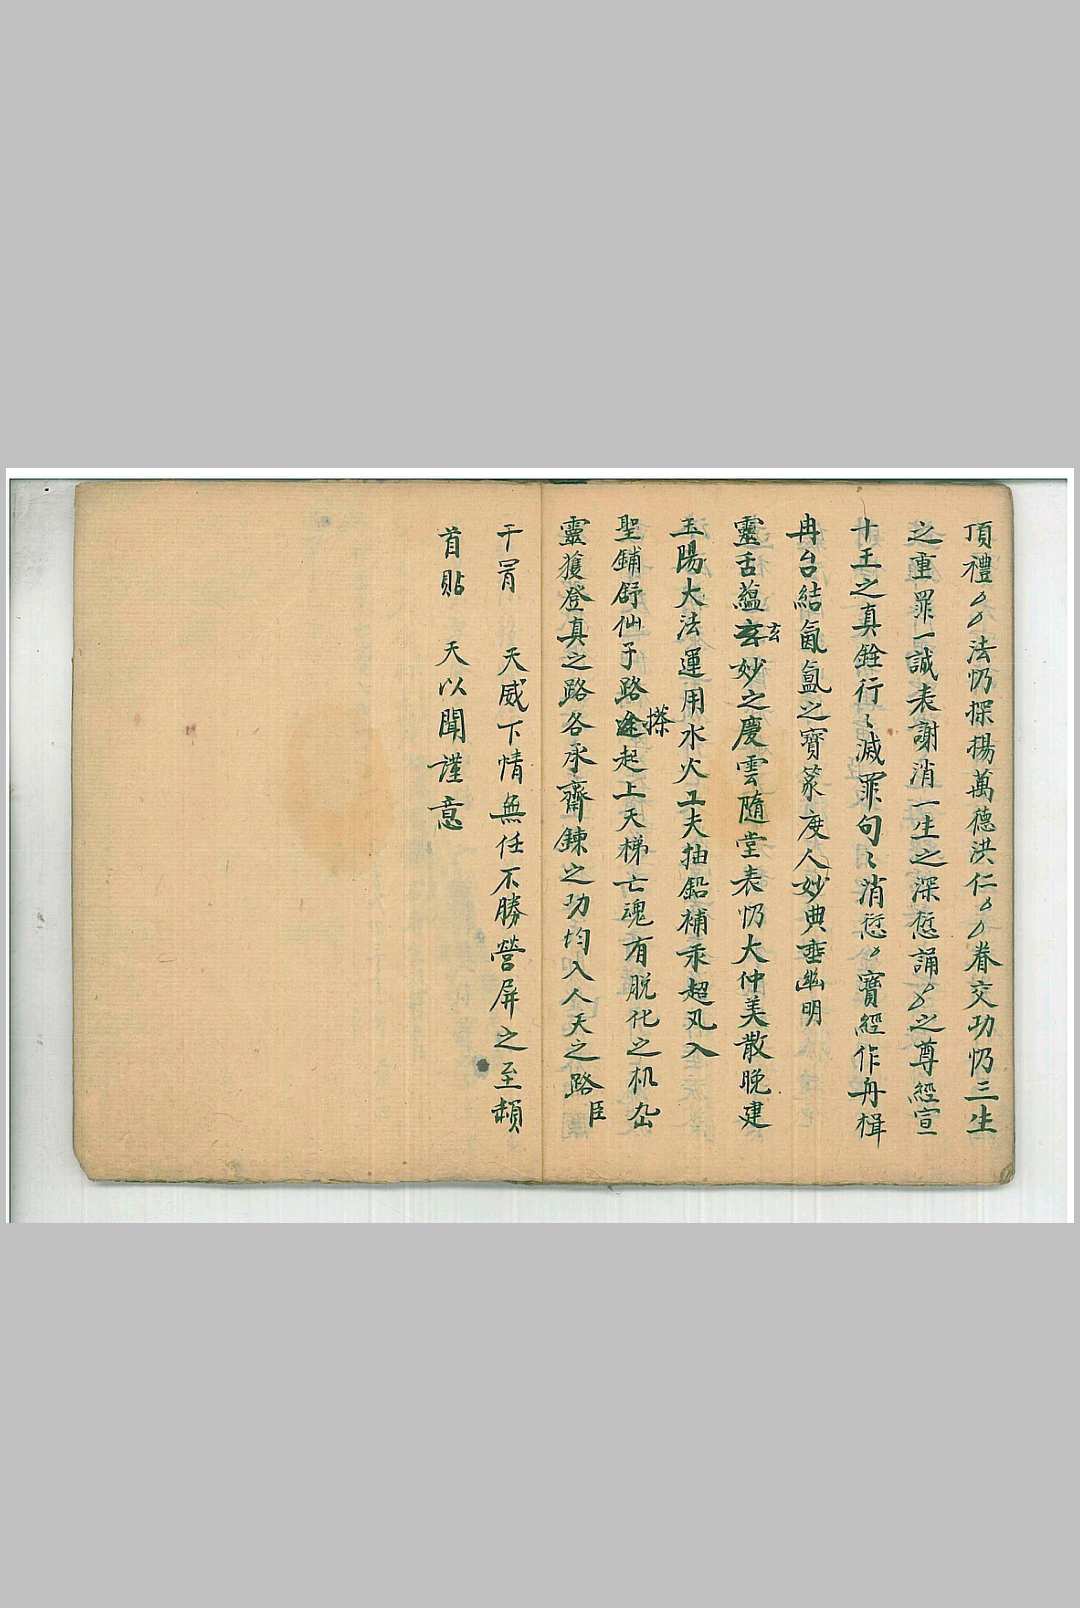 頂禮〻〻法仍探揚萬德洪仁〻〻眷交功仍三生
之重罪一誠表謝消一生之深愆誦〻之尊經宣
十王之真銓行〻滅罪句〻消愆〻寶經作舟楫
冉台結氤氳之寶篆度人妙典垂幽明
靈舌蘊玄妙之慶雲隨堂表仍大仲美散晚建
玉陽大法運用水火工夫抽鉛補汞超凡入
聖鋪舒仙子路搽起上天梯亡魂有脫化之机厶
靈獲登真之路各承齋鍊之功均入人天之路臣
干冒　天威下情無任不勝營屏之至頼
首貼　天以聞謹意